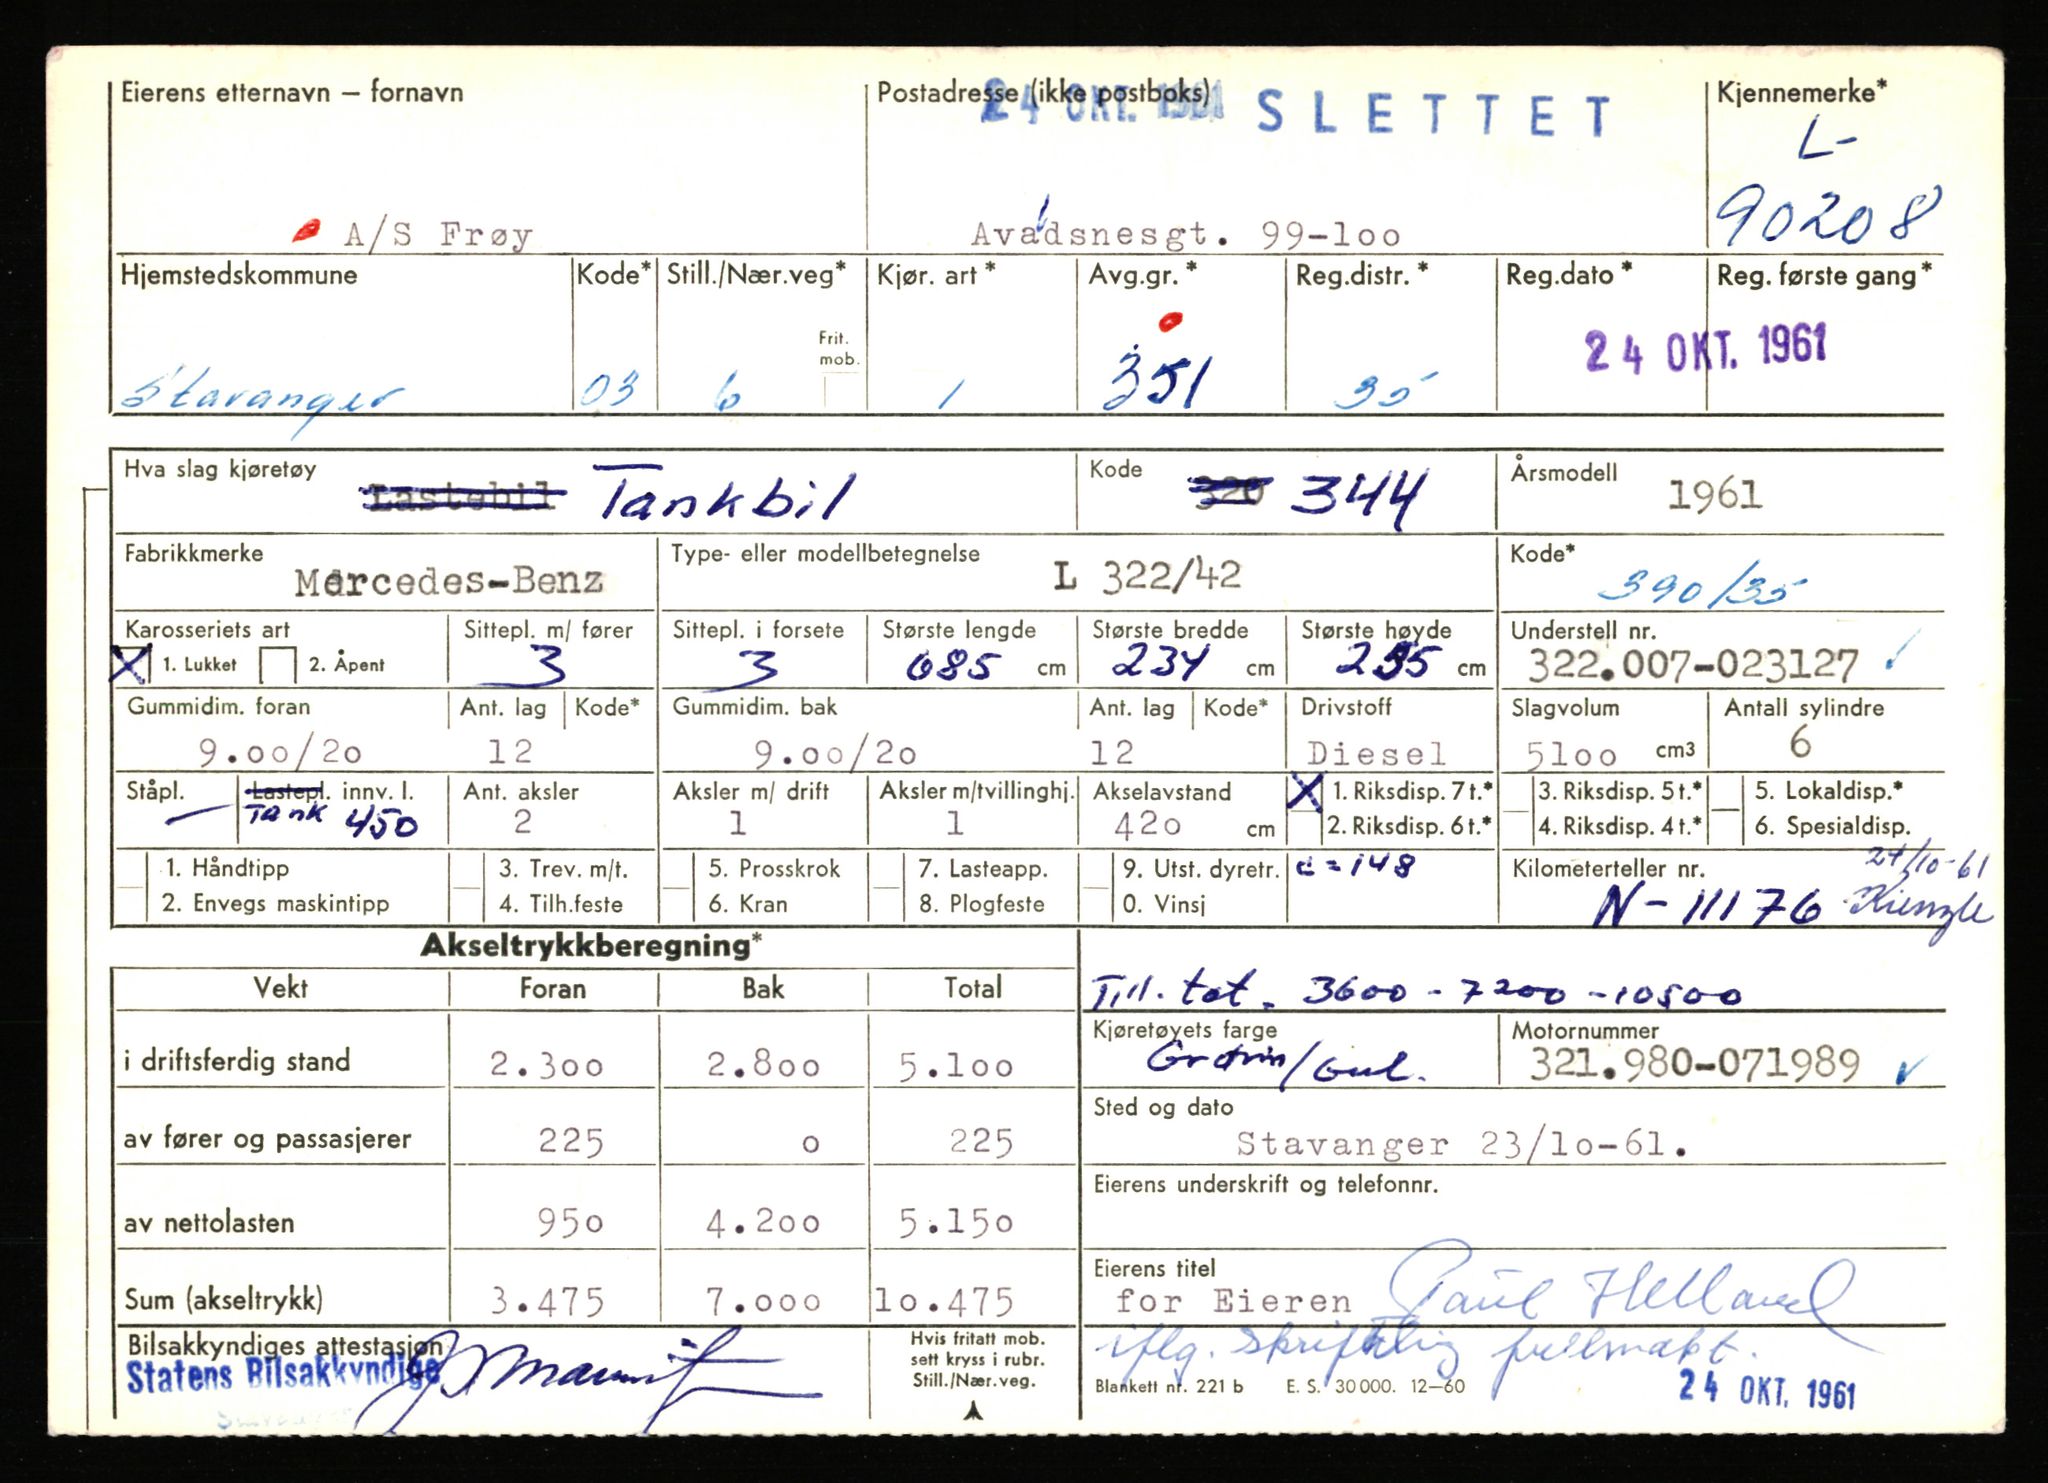 Eierens etternavn – fornavn
Postadresse (ikke postboks)
24 OKT. 1961 SLETTET
Kjennemerke*
L-
90208
A/S Frøy
Avaldsnesgt. 99-100
Hjemstedskommune Kode* Still./Nær.veg* Kjør. art* Avg.gr.* Reg.distr.* Reg.dato* Reg. første gang*
Frit. mob.
Stavanger 03 6 1 351 35 24 OKT. 1961
Hva slag kjøretøy Kode Årsmodell
Lastebil Tankbil 320 344 1961
Fabrikkmerke Type- eller modellbetegnelse Kode*
Mercedes-Benz L 322/42 390/35
Karosseriets art Sittepl. m/ fører Sittepl. i forsete Største lengde Største bredde Største høyde Understell nr.
X 1. Lukket 2. Åpent 3 3 685 cm 234 cm 235 cm 322.007-023127
Gummidim. foran Ant. lag Kode* Gummidim. bak Ant. lag Kode* Drivstoff Slagvolum Antall sylindre
9.00/20 12 9.00/20 12 Diesel 5100 cm3 6
Ståpl. Lastepl. innv. l. Ant. aksler Aksler m/ drift Aksler m/tvillinghj. Akselavstand X 1. Riksdisp. 7 t.* 3. Riksdisp. 5 t.* 5. Lokaldisp.*
— Tank 450 2 1 1 420 cm 2. Riksdisp. 6 t.* 4. Riksdisp. 4 t.* 6. Spesialdisp.
1. Håndtipp 3. Trev. m/t. 5. Prosskrok 7. Lasteapp. 9. Utst. dyretr. c = 148 Kilometerteller nr. 24/10-61
2. Envegs maskintipp 4. Tilh.feste 6. Kran 8. Plogfeste 0. Vinsj N-11176 Kienzle
Akseltrykkberegning*
Vekt Foran Bak Total
Till. tot. 3600 - 7200 - 10500
i driftsferdig stand 2.300 2.800 5.100
Kjøretøyets farge Motornummer
Grønn/Gul. 321.980-071989
av fører og passasjerer 225 0 225
Sted og dato
Stavanger 23/10-61.
av nettolasten 950 4.200 5.150
Eierens underskrift og telefonnr.
Sum (akseltrykk) 3.475 7.000 10.475
Eierens titel
for Eieren Paul Helland
iflg. skriftlig fullmakt.
Bilsakkyndiges attestasjon
Statens Bilsakkyndige
Hvis fritatt mob.
sett kryss i rubr.
Still./Nær.veg.
Blankett nr. 221 b E. S. 30 000. 12–60
24 OKT. 1961